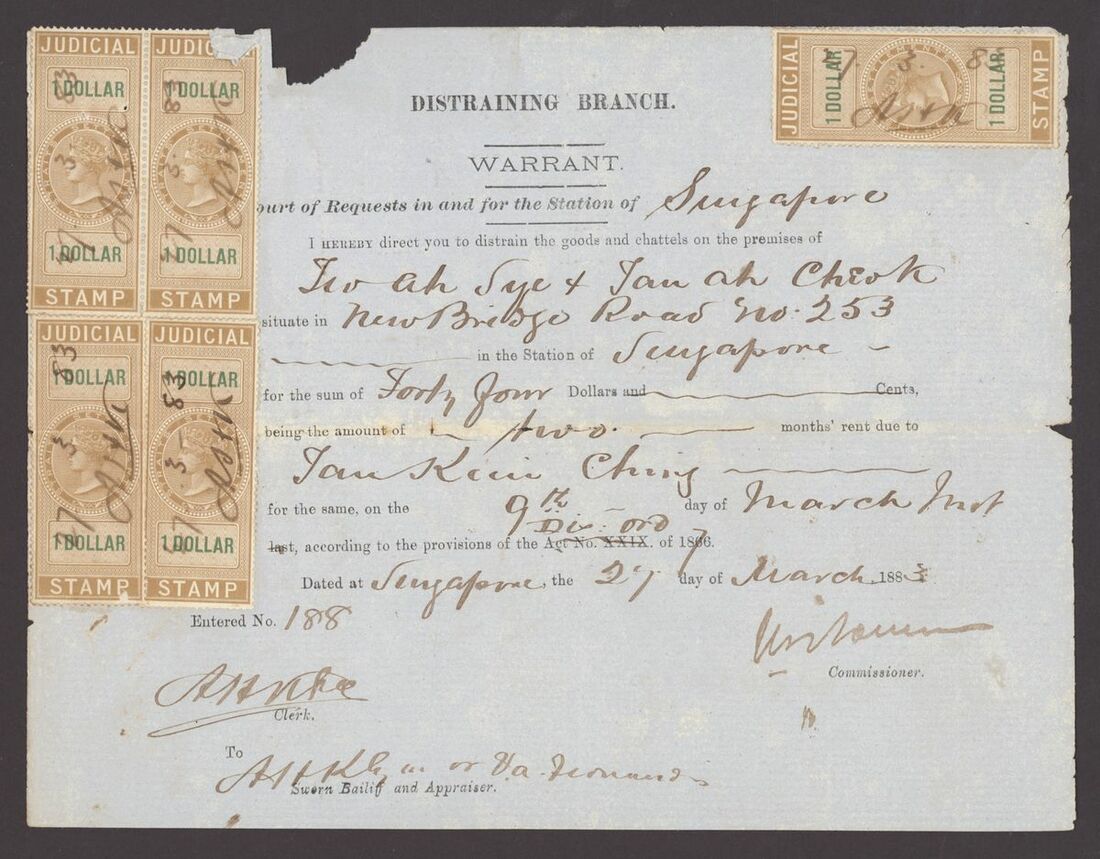 JUDICIAL
1 DOLLAR
83
3
27
1 DOLLAR
STAMP
JUDIC
1 DOLLAR
83
3
27
1 DOLLAR
STAMP
JUDICIAL
1 DOLLAR
83
3
27
1 DOLLAR
STAMP
JUDICIAL
1 DOLLAR
83
3
27
1 DOLLAR
STAMP
JUDICIAL
1 DOLLAR
27 3 83
1 DOLLAR
STAMP
DISTRAINING BRANCH.
WARRANT.
ourt of Requests in and for the Station of Singapore
I HEREBY direct you to distrain the goods and chattels on the premises of
Ah Sye & Tan Ah Cheok
situate in New Bridge Road No. 253
in the Station of Singapore
for the sum of Forty four Dollars and Cents,
being the amount of two months' rent due to
Tan Kim Ching
for the same, on the 9th day of March Inst
last, according to the provisions of the Act No. XXIX. of 1866. 7
Dated at Singapore, the 27 day of March, 1883
Entered No. 188
Commissioner.
Clerk.
To
Sworn Bailiff and Appraiser.